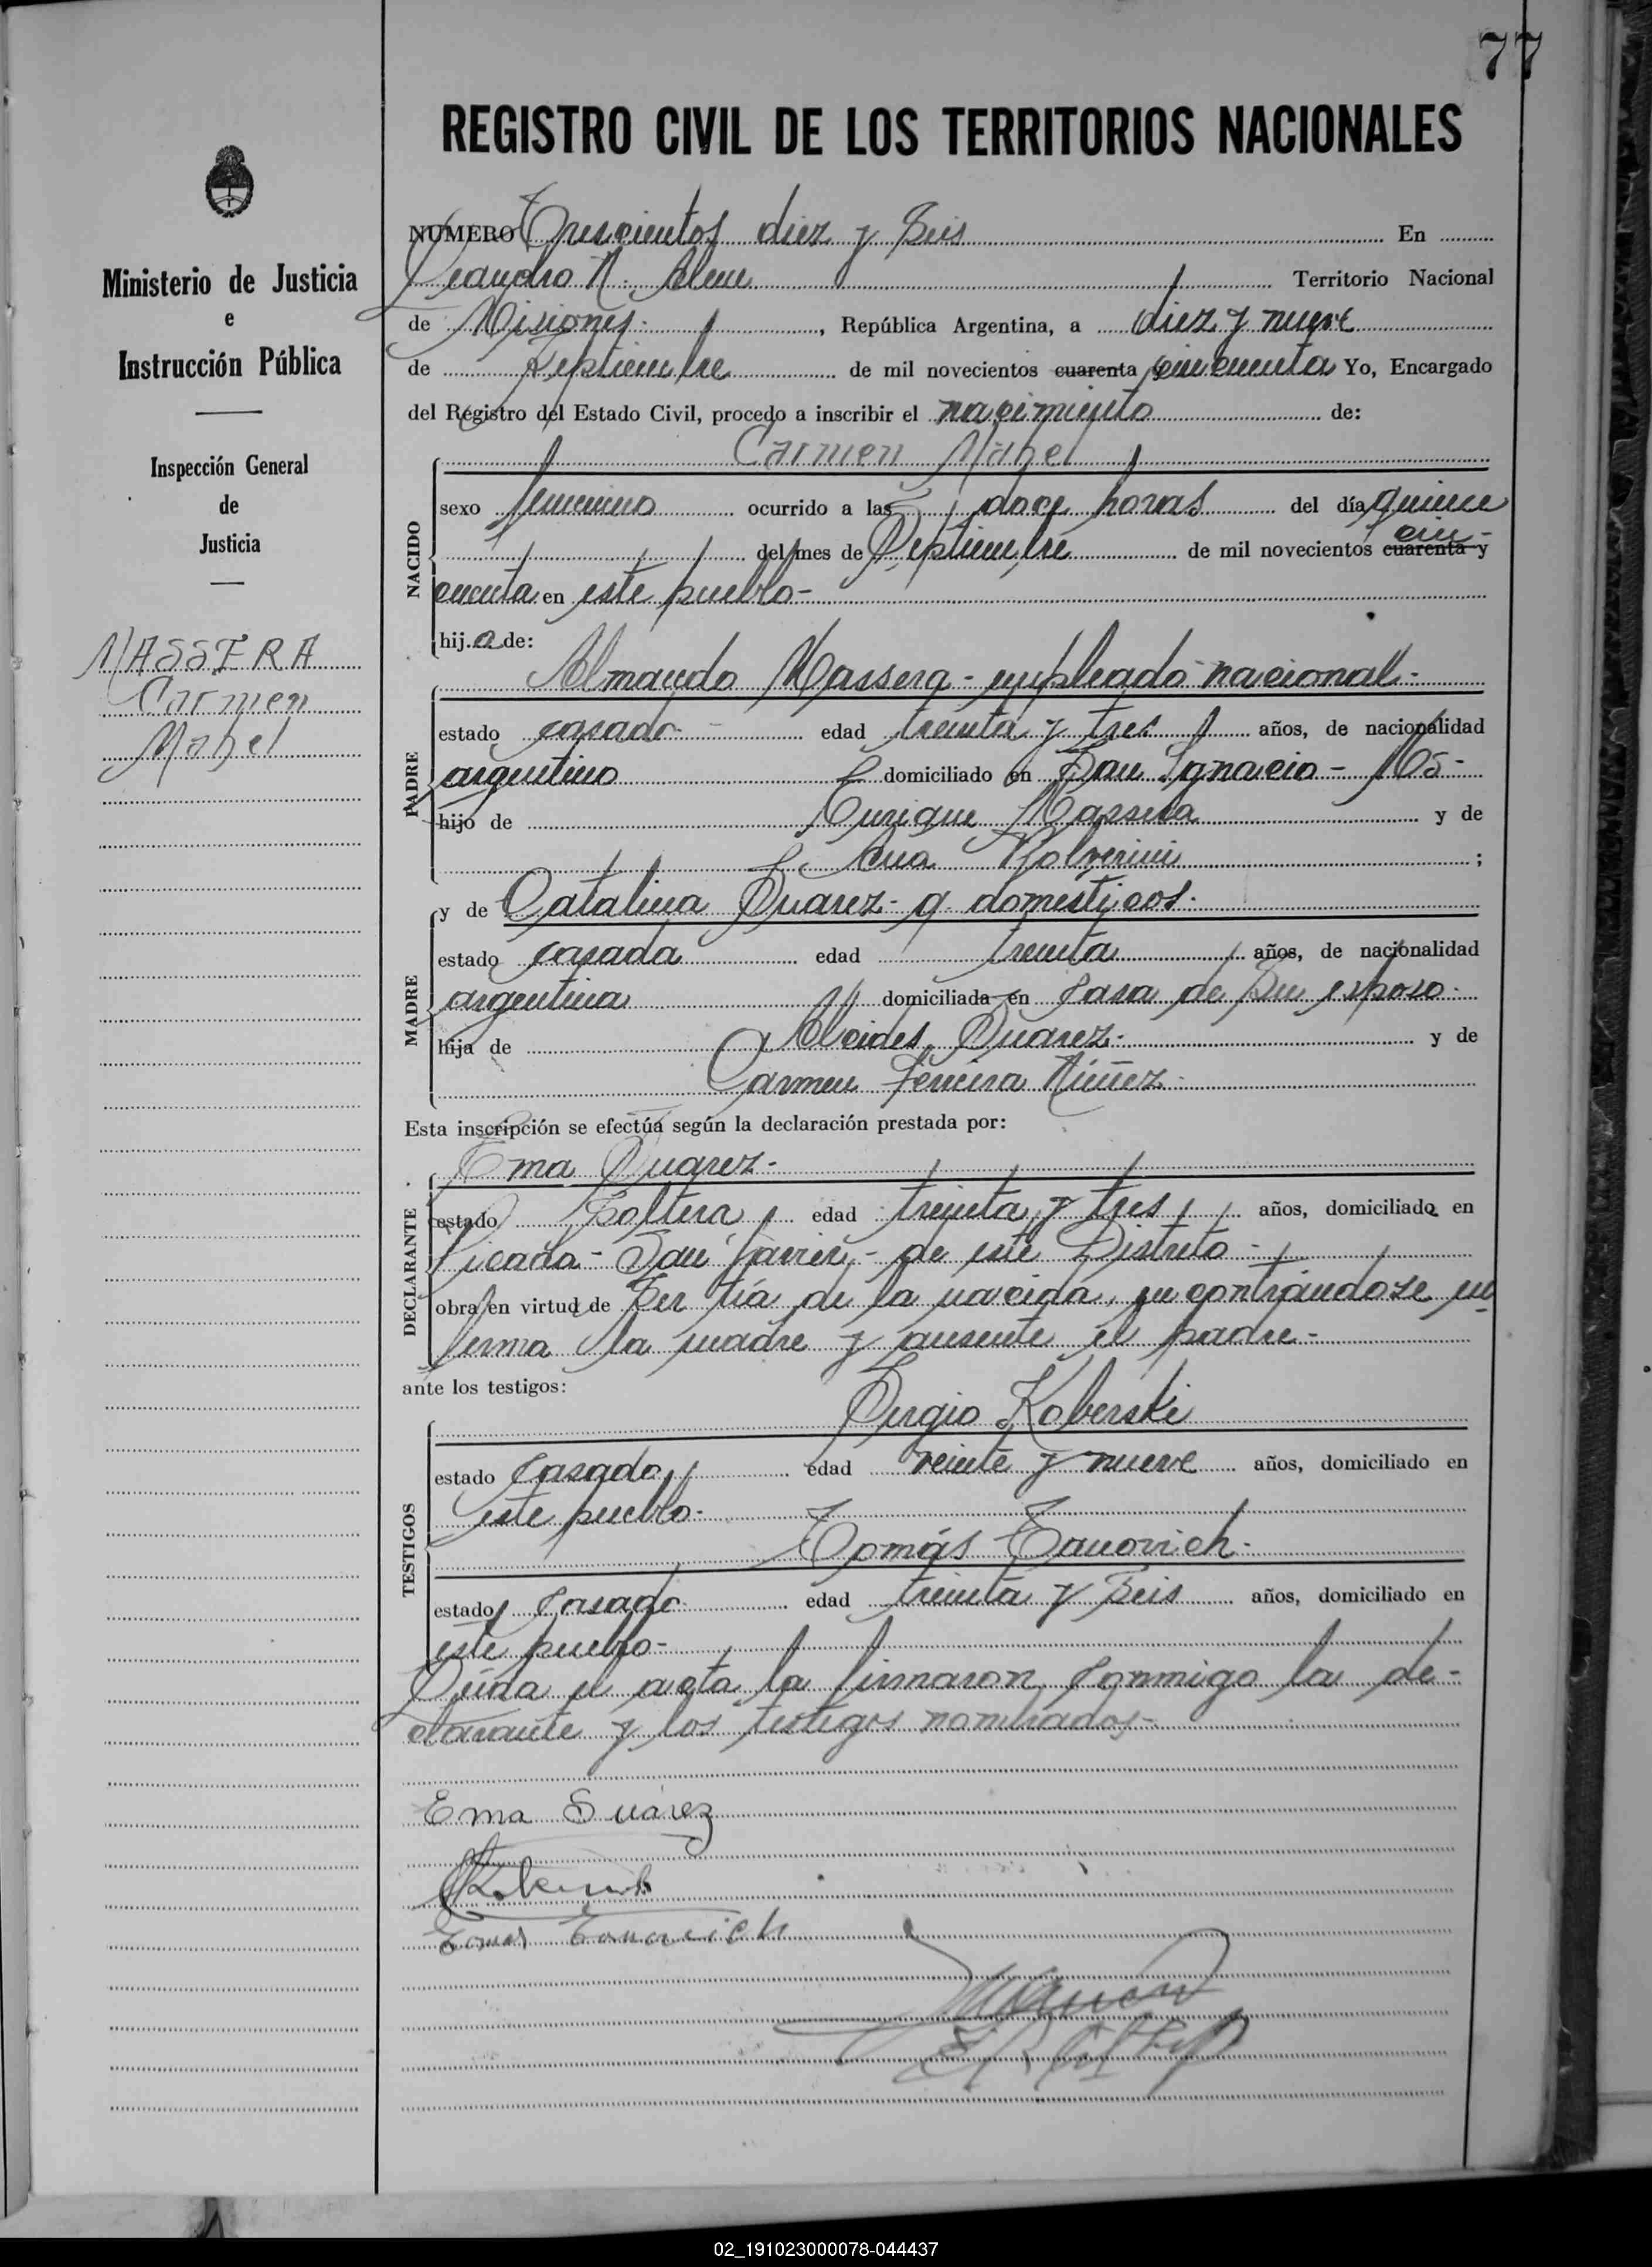 77
REGISTRO CIVIL DE LOS TERRITORIOS NACIONALES
Ministerio de Justicia
e
Instrucción Pública
Inspección General
de
Justicia
MASSERA
Carmen
Mabel
NUMERO Trescientos diez y Seis En
Leandro N. Alem Territorio Nacional
de Misiones. , República Argentina, a diez y nueve
de Septiembre de mil novecientos cuarenta cincuenta Yo, Encargado
del Registro del Estado Civil, procedo a inscribir el nacimiento de:
Carmen Mabel
NACIDO
sexo femenino ocurrido a las doce horas del día quince
del mes de Septiembre de mil novecientos cuarenta y cin-
cuenta en este pueblo-
hija de:
PADRE
Almando Massera - empleado nacional.-
estado casado- edad treinta y tres años, de nacionalidad
argentino domiciliado en San Ignacio - Mos-
hijo de Enrique Massera y de
Ana ;
MADRE
y de Catalina Suarez- q. domesticos.
estado casada edad treinta años, de nacionalidad
argentina domiciliada en casa de Su esposo.
hija de Alcides Suarez.- y de
Carmen Ferreira Núñez.
Esta inscripción se efectúa según la declaración prestada por:
DECLARANTE
Ema Suarez.
estado Soltera edad treinta y tres años, domiciliado en
Picada - San Javier,- de este Distrito -
obra en virtud de Ser tía de la nacida, encontrándose en
ferma la madre y ausente el padre.-
ante los testigos:
TESTIGOS
Sergio Koberski
estado Casado edad veinte y nueve años, domiciliado en
este pueblo.
Tomás Tanovich.
estado Casado edad treinta y Seis años, domiciliado en
este pueblo-
Leída el acta la firmaron conmigo la de-
clarante y los testigos nombrados.-
Ema Suárez
Tomas Tanovich
02_191023000078-044437